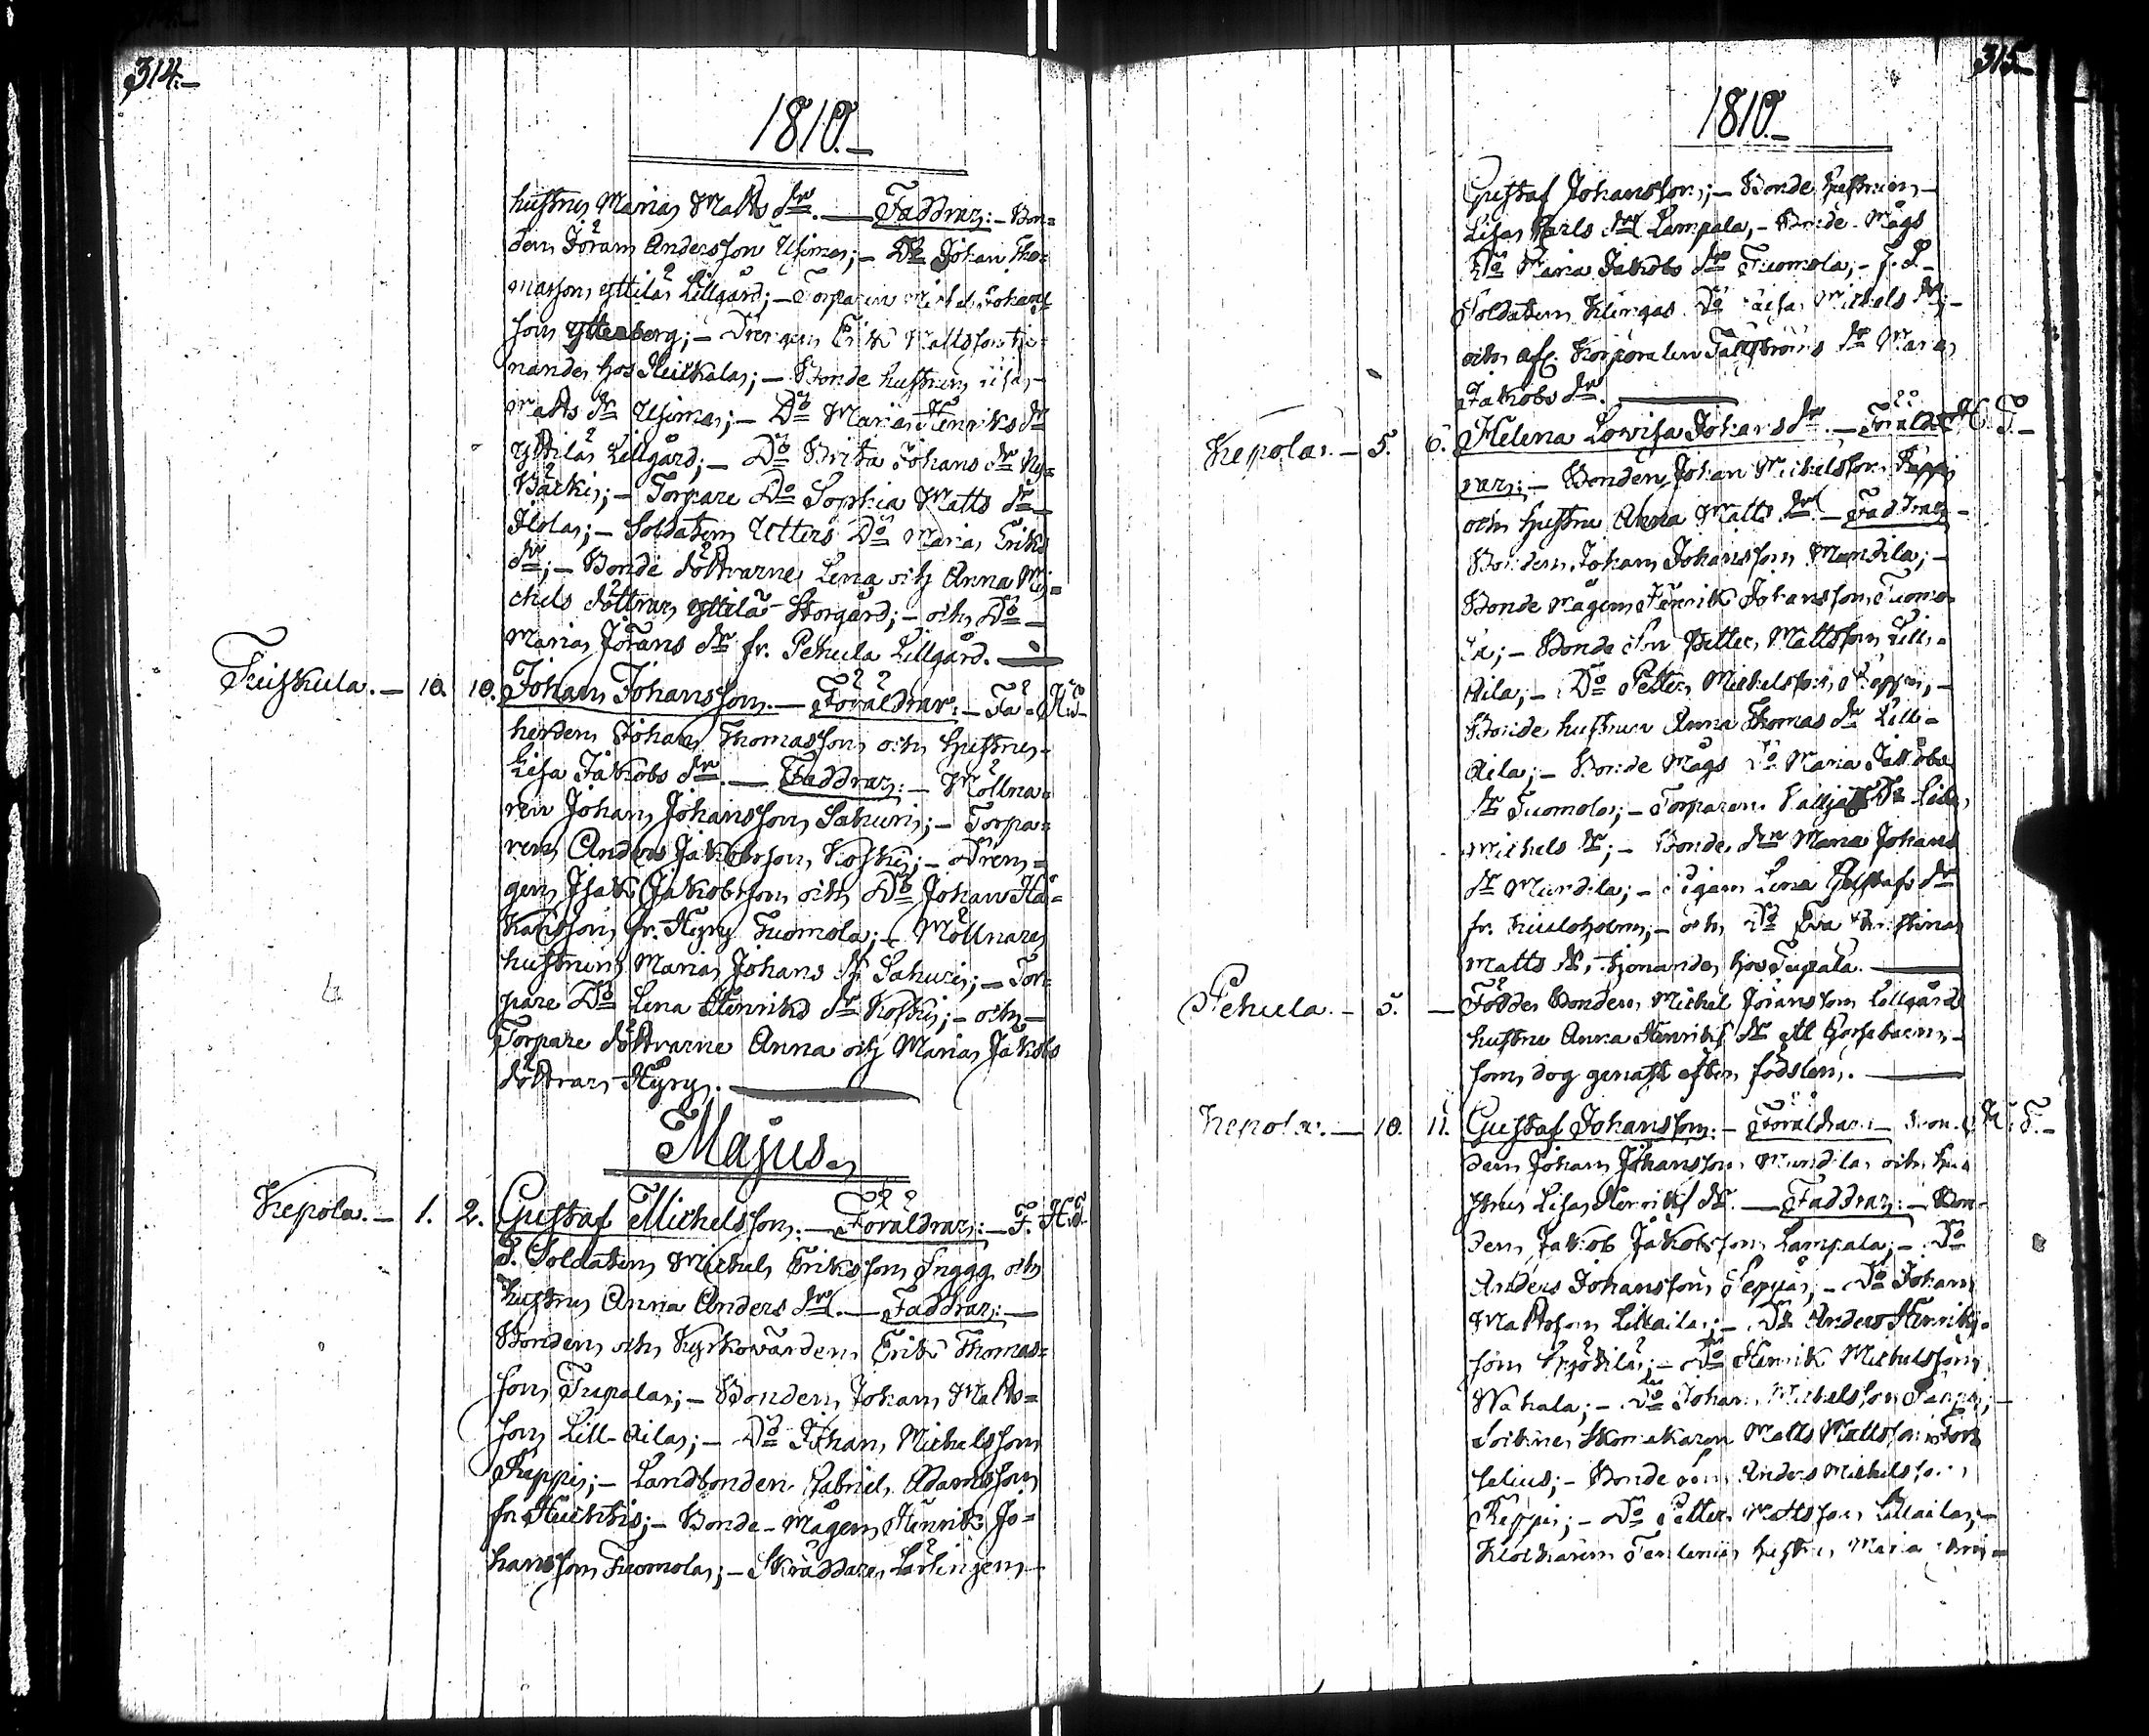 314.
1810.
hustrus Maria Matts dr. — Faddrar: — Bon=
den Jöran Andersson Uhima; — Do Johan Tho=
masson Yttilä Lillgård; — Torparen Michel Johans
son Ytterberg; — Drengen Erik Mattsson tje=
nande hos Heickala; — Bonde hustrun Lisa
Matts dr Uhima; — Do Maria Henriks dr
Yttilä Lillgård; — Do Brita Johans dr
Backi; — Torpare Do Sophia Matts dr —
Jlola; — Soldaten Utters Do Maria Eriks
dr; — Bonde döttrarne Lena och Anna Mi=
chels döttrar Yttilä Storgård; — och Do —
Maria Jörans dr fr. Pehula Lillgård. —
— 10. 10. Johan Johansson. — Föräldrar: — Få=
herden Johan Thomasson och hustru
Lisa Jakobs dr. — Faddrar: — Möllna=
ren Johan Johansson Sahuri; — Torpa=
ren Anders Jakobsson Koski; — Dren=
gen Isak Jakobsson och Do Johan Hå=
kansson fr. Hyry Tuomola; — Möllnare
hustrun Maria Johans dr Sahuri; — Tor=
pare Do Lena Henriks dr Koski; — och —
Torpare döttrarne Anna och Maria Jakobs
döttrar Hyry. —
Majus.
Kepola. — 1. 2. Gustaf Michelsson. — Föräldrar: — F.
d. Soldaten Michel Eriksson Snygg och
hustru Anna Anders dr. — Faddrar: —
Bonden och Kyrkovärden Erik Thomas=
son Tupala; — Bonden Johan Matts=
son Lill-Aila; — Do Johan Michelsson
Reppi; — Landbonden Gabriel Adamsson
fr. Huchtis; — Bonde-Mågen Henrik Jo=
hansson Tuomola; — Skräddare Lärlingen —
315.
1810.
Gustaf Johansson; — Bonde hustrun
Lisa Carls dr Lampala; — Bonde Mågs
Do Maria Jakobs dr Tuomola; — f. d.
Soldaten Klingas Do Caisa Michels dr; —
och afl. Korporalen Tallströms dr Maria
Jakobs dr. —
Kepola. — 5. 6. Helena Lovisa Johans dr. — Föräld
rar: — Bonden Johan Michelsson Reppi
och hustru Anna Matts dr. — Faddrar —
Bonden Johan Johansson Mandila; —
Bonde Mågen Henrik Johansson Tuomo=
la; — Bonde Son Petter Mattsson Lill=
Aila; — Do Petter Michelsson Reppi; —
Bonde hustrun Anna Thomas dr Lill=
Aila; — Bonde Mågs Do Maria Jakobs
dr Tuomola; — Torparens Do Lisa
Michels dr; — Bonde dr Maria Johans
dr Mandila; — Pigan Lena Gustafs dr
fr. Kiuloholm; — och Do Eva Kristina
Matts dr, tjenande hos Tupala. —
Pehula. — 5. — Födde Bonden Michel Jöransson Lillgårds
hustru Anna Henriks dr ett gossebarn
som dog genast efter födslen. —
Kepola. — 10. 11. Gustaf Johansson. — Föräldrar: — Bon=
den Johan Johansson Mandila och hu=
stru Lisa Henriks dr. — Faddrar: — Bon=
den Jakob Jakobsson Lampala; — Do
Anders Johansson Seppä; — Do Johan
Mattsson Lillaila; — Do Anders Henriks=
son; — Do Henrik Michelsson
Wahala; — Do Johan Michelsson Reppi; —
Sockne Skomakaren Matts Mattsson
selius; — Bonde son Anders Michelsson
Reppi; — Do Petter Mattsson Lillaila; —
Klockaren hustru Maria